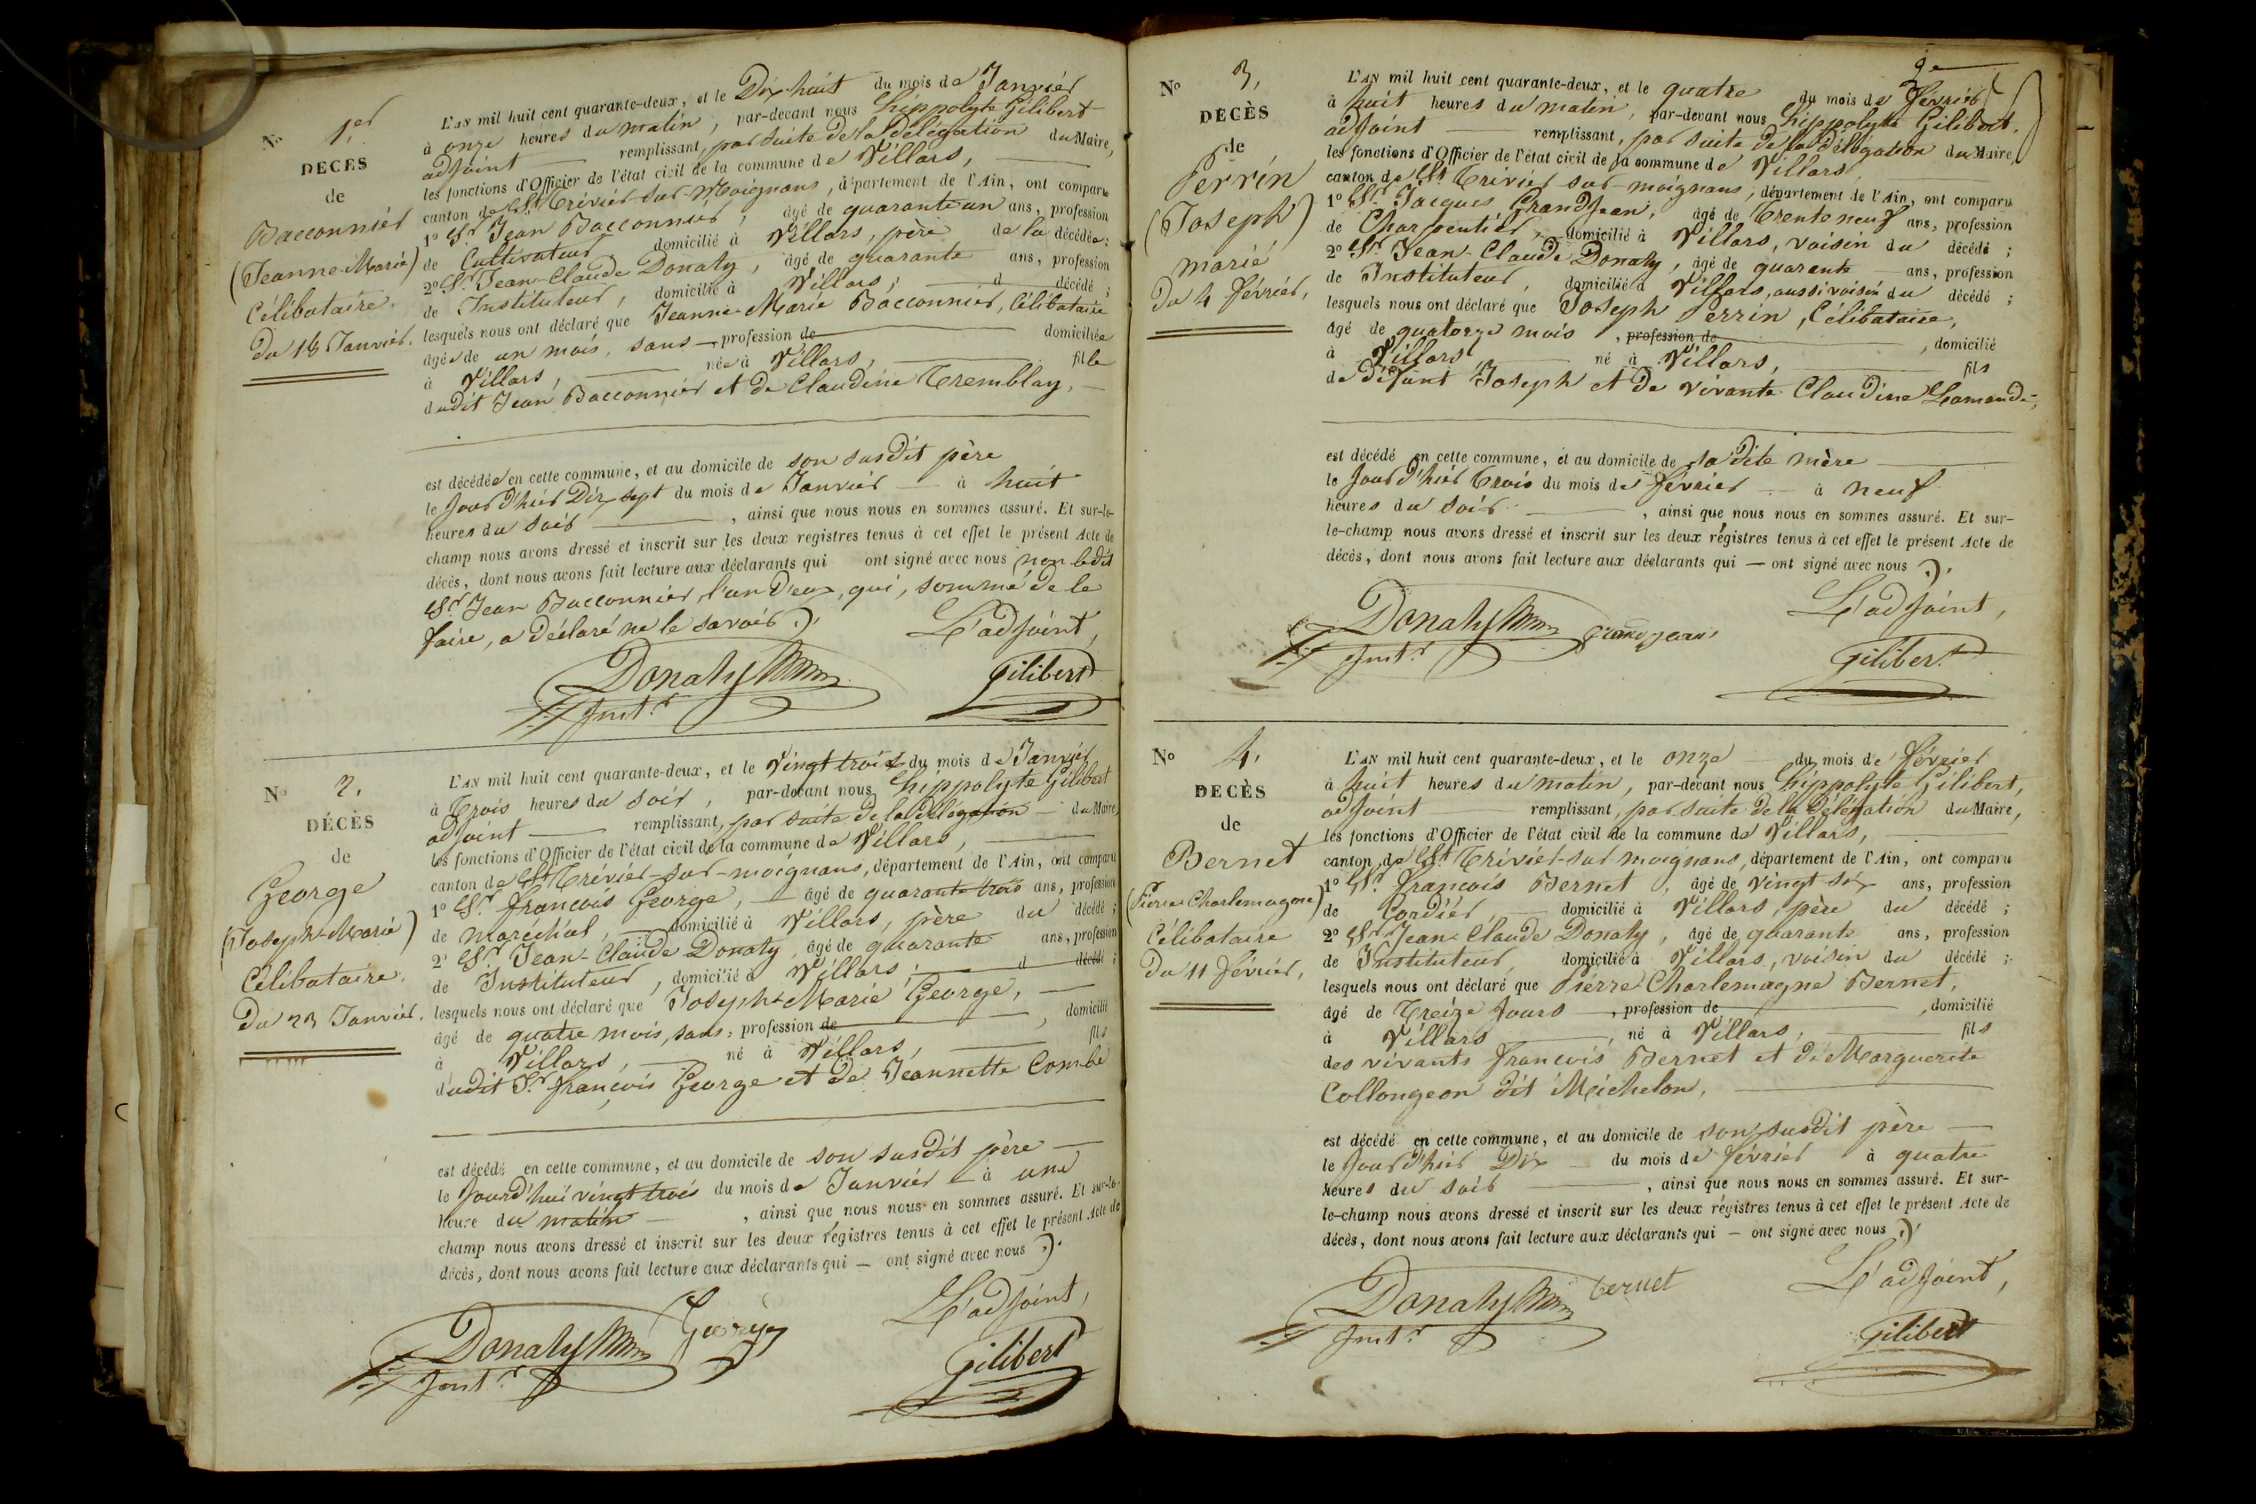 N° 1.er
DÉCÈS
de
Bacconnier
(Jeanne-Marie)
Célibataire.
Du 18 Janvier.
L'AN mil huit cent quarante-deux, et le Dix-huit du mois de Janvier
à onze heures du matin, par-devant nous hippolyte Gilibert
adjoint remplissant, par suite de la Délégation du Maire,
les fonctions d'Officier de l'état civil de la commune de Villars,
canton de St Trivier-sur-moignans, département de l'Ain, ont comparu
1° Sr. Jean Bacconnier, âgé de quarante un ans, profession
de Cultivateur domicilié à Villars, père de la décédée;
2° Sr. Jean-Claude Donaty, âgé de quarante ans, profession
de Instituteur, domicilié à Villars, d décédé;
lesquels nous ont déclaré que Jeanne-Marie Bacconnier, Célibataire
âgée de un mois, sans profession de domiciliée
à Villars, née à Villars, fille
dudit Jean Bacconnier et de Claudine Tremblay,
est décédée en cette commune, et au domicile de son susdit père
le jour d'hier Dix sept du mois de Janvier à huit
heures du soir, ainsi que nous nous en sommes assuré. Et sur-le-
champ nous avons dressé et inscrit sur les deux registres tenus à cet effet le présent Acte de
décès, dont nous avons fait lecture aux déclarants qui ont signé avec nous non ledit
Sr. Jean Bacconnier, l'un d'eux, qui, sommé de le
faire, a déclaré ne le savoir.
L'adjoint,
Donaty
Instr.
Gilibert
N° 2.
DÉCÈS
de
George
(Joseph-Marie)
Célibataire.
Du 23 Janvier.
L'AN mil huit cent quarante-deux, et le Vingt trois du mois de Janvier
à Trois heures du soir, par-devant nous hippolyte Gilibert
adjoint remplissant, par suite de la Délégation du Maire
les fonctions d'Officier de l'état civil de la commune de Villars,
canton de St Trévier-sur-moignans, département de l'Ain, ont comparu
1° Sr. françois George, âgé de quarante trois ans, profession
de maréchal, domicilié à Villars, père du décédé;
2° Sr. Jean-Claude Donaty, âgé de quarante ans, profession
de Instituteur, domicilié à Villars, d décédé;
lesquels nous ont déclaré que Joseph-Marie George,
âgé de quatre mois, sans, profession de, domicilié
à Villars, né à Villars, fils
dudit Sr. françois George et de Jeannette Combe
est décédé en cette commune, et au domicile de son susdit père
le jourd'hui vingt trois du mois de Janvier à une
heure du matin, ainsi que nous nous en sommes assuré. Et sur-le-
champ nous avons dressé et inscrit sur les deux registres tenus à cet effet le présent Acte de
décès, dont nous avons fait lecture aux déclarants qui — ont signé avec nous.
L'adjoint,
Donaty George
Instr.
Gilibert
2e
N° 3.
DÉCÈS
de
Perrin
(Joseph)
marié
Du 4 février,
L'AN mil huit cent quarante-deux, et le quatre du mois de février
à huit heures du matin, par-devant nous hippolyte Gilibert,
adjoint remplissant, par suite de la Délégation du Maire,
les fonctions d'Officier de l'état civil de la commune de Villars,
canton de St Trivier sur-moignans, département de l'Ain, ont comparu
1° Sr. Jacques Grandjean, âgé de Trente neuf ans, profession
de Charpentier, domicilié à Villars, voisin du décédé;
2° Sr. Jean-Claude Donaty, âgé de quarante ans, profession
de Instituteur, domicilié à Villars, aussi voisin du décédé;
lesquels nous ont déclaré que Joseph Perrin, Célibataire,
âgé de quatorze mois, profession de, domicilié
à Villars né à Villars, fils
de défunt Joseph et de vivante Claudine Lamande,
est décédé en cette commune, et au domicile de sa dite mère
le jour d'hier Trois du mois de février à neuf
heures du soir, ainsi que nous nous en sommes assuré. Et sur-
le-champ nous avons dressé et inscrit sur les deux régistres tenus à cet effet le présent Acte de
décès, dont nous avons fait lecture aux déclarants qui — ont signé avec nous.
L'adjoint,
Donaty grandjean
Instr.
Gilibert
N° 4.
DÉCÈS
de
Bernet
(Pierre Charlemagne)
Célibataire
Du 11 février,
L'AN mil huit cent quarante-deux, et le onze du mois de février
à huit heures du matin, par-devant nous hippolyte Gilibert,
adjoint remplissant, par suite de la Délégation du Maire,
les fonctions d'Officier de l'état civil de la commune de Villars,
canton de St Trivier-sur moignans, département de l'Ain, ont comparu
1° Sr. françois Bernet, âgé de vingt six ans, profession
de Cordier, domicilié à Villars, père du décédé;
2° Sr. Jean-Claude Donaty, âgé de quarante ans, profession
de Instituteur, domicilié à Villars, voisin du décédé;
lesquels nous ont déclaré que Pierre Charlemagne Bernet,
âgé de Treize jours, profession de, domicilié
à Villars, né à Villars, fils
des vivants françois Bernet et de Marguerite
Collongeon dit Michelon,
est décédé en cette commune, et au domicile de son susdit père
le jour d'hier Dix du mois de février à quatre
heures du soir, ainsi que nous nous en sommes assuré. Et sur-
le-champ nous avons dressé et inscrit sur les deux régistres tenus à cet effet le présent Acte de
décès, dont nous avons fait lecture aux déclarants qui — ont signé avec nous.
L'adjoint,
Donaty bernet
Instr.
Gilibert